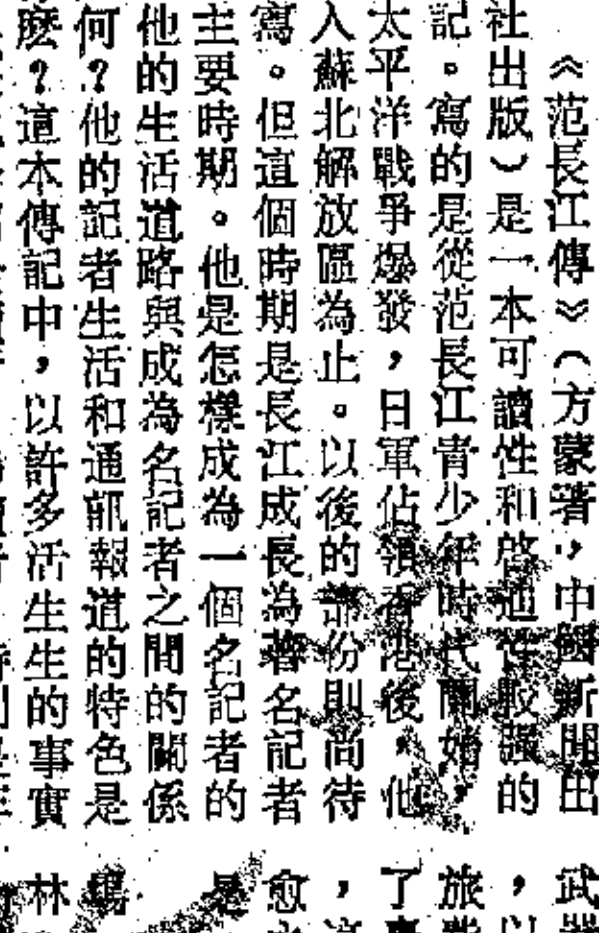 《范長江傳》（方蒙著，中國新聞出
社出版）是一本可讀性和啓迪性較强的
記。寫的是從范長江青少年時代開始，
太平洋戰爭爆發，日軍佔領香港後，他
入蘇北解放區為止。以後的部份則尚待
寫。但這個時期是長江成長為著名記者
主要時期。他是怎樣成為一個名記者的
他的生活道路與成為名記者之間的關係
何？他的記者生活和通訊報道的特色是
麽？這本傳記中，以許多活生生的事實
武
，以
旅
了
，
愈
是
林